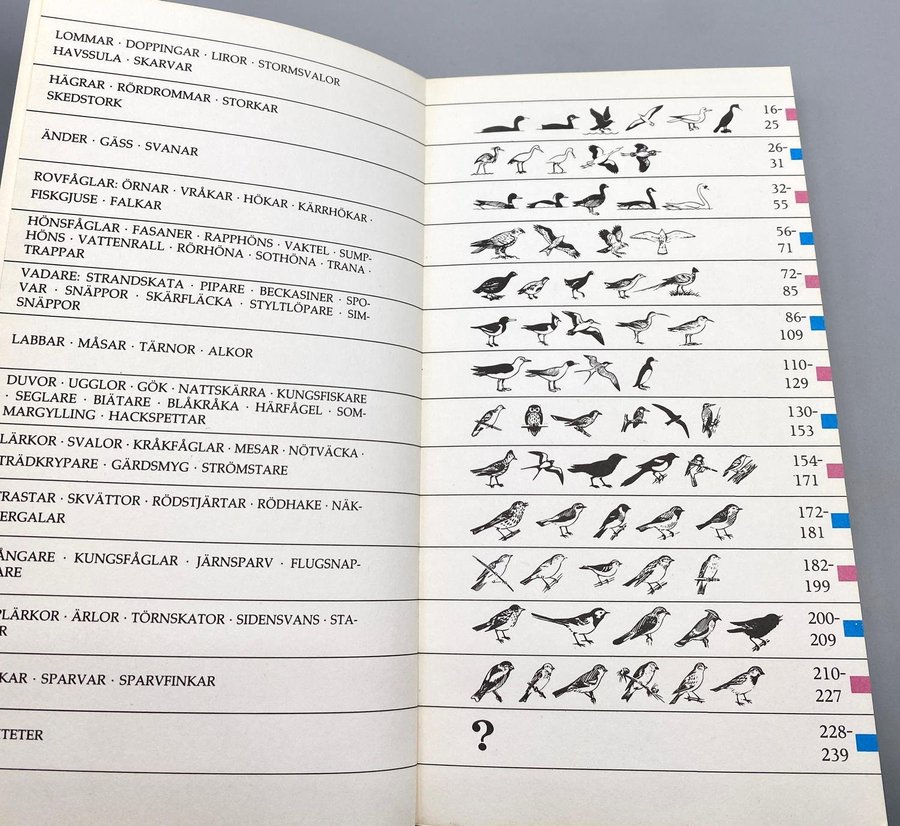 LOMMAR · DOPPINGAR · LIROR · STORMSVALOR
HAVSSULA · SKARVAR
HÄGRAR · RÖRDROMMAR · STORKAR
SKEDSTORK
ÄNDER · GÄSS · SVANAR
ROVFÅGLAR: ÖRNAR · VRÅKAR · HÖKAR · KÄRRHÖKAR ·
FISKGJUSE · FALKAR
HÖNSFÅGLAR · FASANER · RAPPHÖNS · VAKTEL · SUMP-
HÖNS · VATTENRALL · RÖRHÖNA · SOTHÖNA · TRANA ·
TRAPPAR
VADARE: STRANDSKATA · PIPARE · BECKASINER · SPO-
VAR · SNÄPPOR · SKÄRFLÄCKA · STYLTLÖPARE · SIM-
SNÄPPOR
LABBAR · MÅSAR · TÄRNOR · ALKOR
DUVOR · UGGLOR · GÖK · NATTSKÄRRA · KUNGSFISKARE
· SEGLARE · BIÄTARE · BLÅKRÅKA · HÄRFÅGEL · SOM-
MARGYLLING · HACKSPETTAR
LÄRKOR · SVALOR · KRÅKFÅGLAR · MESAR · NÖTVÄCKA ·
TRÄDKRYPARE · GÄRDSMYG · STRÖMSTARE
TRASTAR · SKVÄTTOR · RÖDSTJÄRTAR · RÖDHAKE · NÄK-
ERGALAR
ÅNGARE · KUNGSFÅGLAR · JÄRNSPARV · FLUGSNAP-
ARE
PLÄRKOR · ÄRLOR · TÖRNSKATOR · SIDENSVANS · STA-
R
KAR · SPARVAR · SPARVFINKAR
ITETER
16-
25
26-
31
32-
55
56-
71
72-
85
86-
109
110-
129
130-
153
154-
171
172-
181
182-
199
200-
209
210-
227
?
228-
239